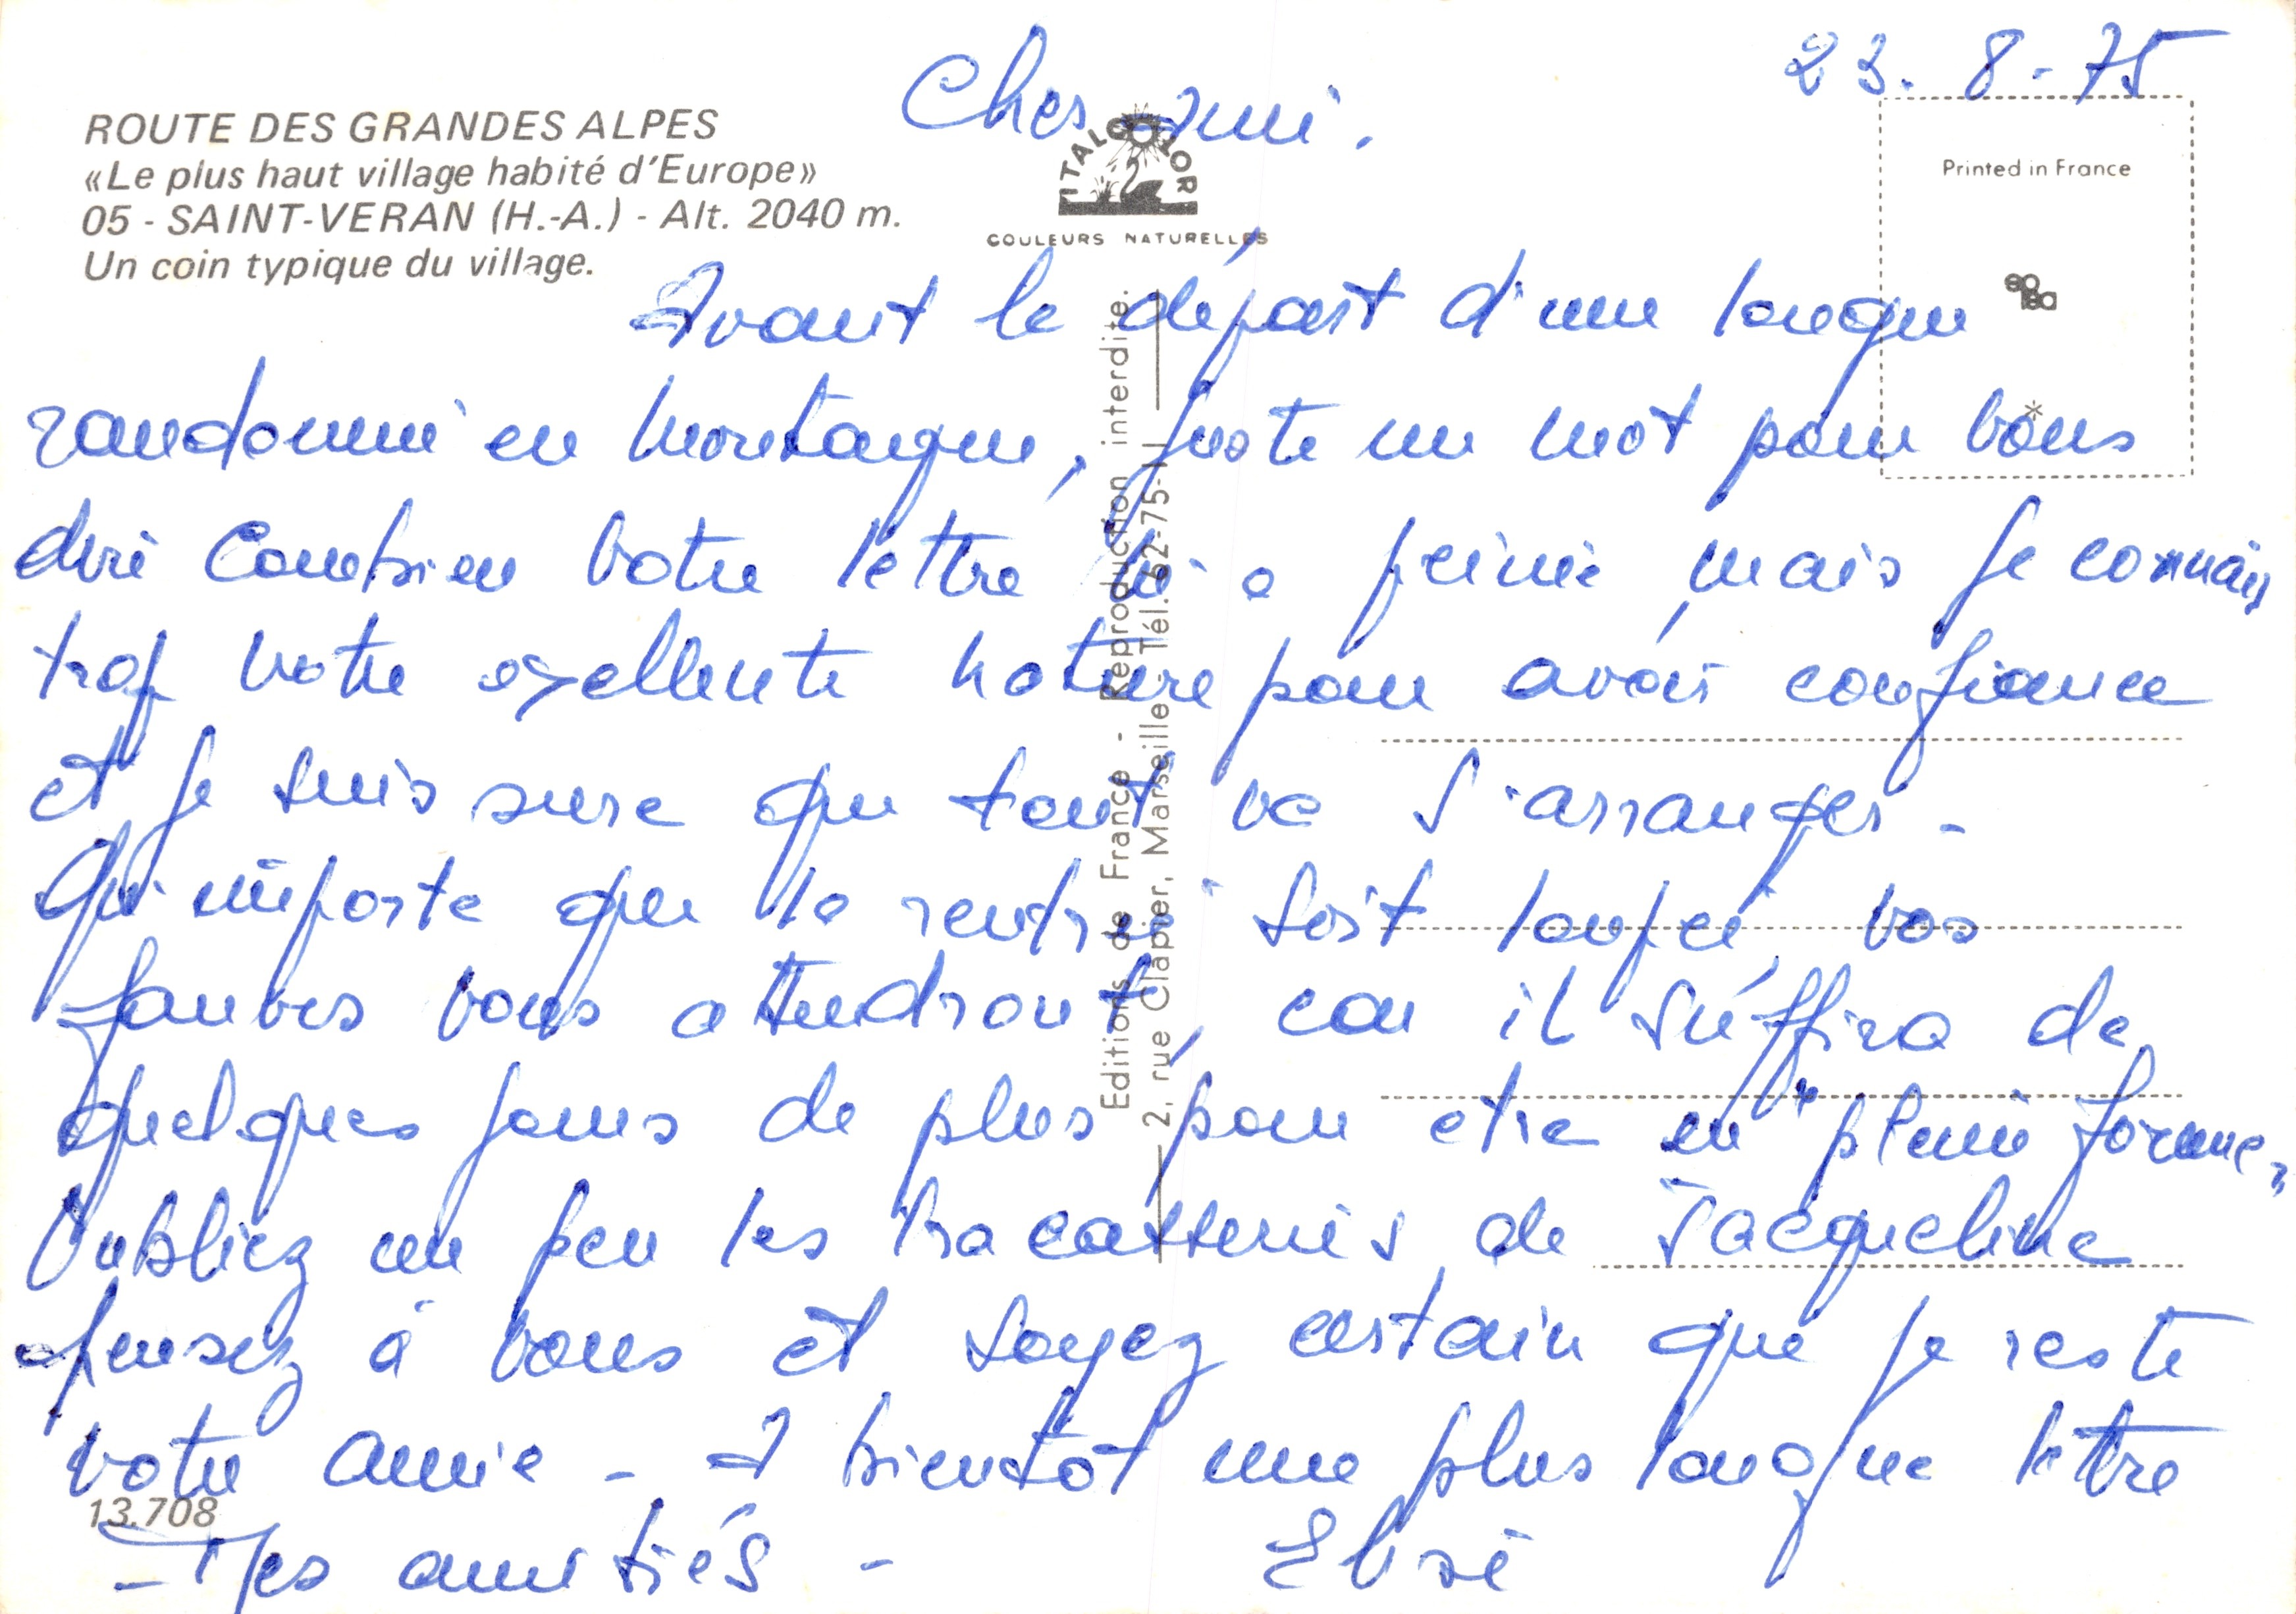 23.8-75
Cher Ami.
ROUTE DES GRANDES ALPES
«Le plus haut village habité d'Europe»
05 - SAINT-VERAN (H.-A.) - Alt. 2040 m.
Un coin typique du village.
ITALCOLOR
COULEURS NATURELLES
Printed in France
Editions de France - Reproduction interdite.
2, rue Clapier, Marseille - Tél. 62-75-11
Avant le départ d'une longue
randonnée en montagne, juste un mot pour vous
dire combien votre lettre m'a peinée mais je connais
trop votre exellente nature pour avoir confiance
et je suis sure que tout va s'arranger -
Qu'importe que la rentrée soit loupée vos
fauves vous attendront, car il suffira de
quelques jours de plus pour etre en pleine forme,
Oubliez un peu les tracasseries de Jacqueline
pensez à vous et soyez certain que je reste
votre amie - A bientôt une plus longue lettre
13.708
- Mes amitiés - Elisé